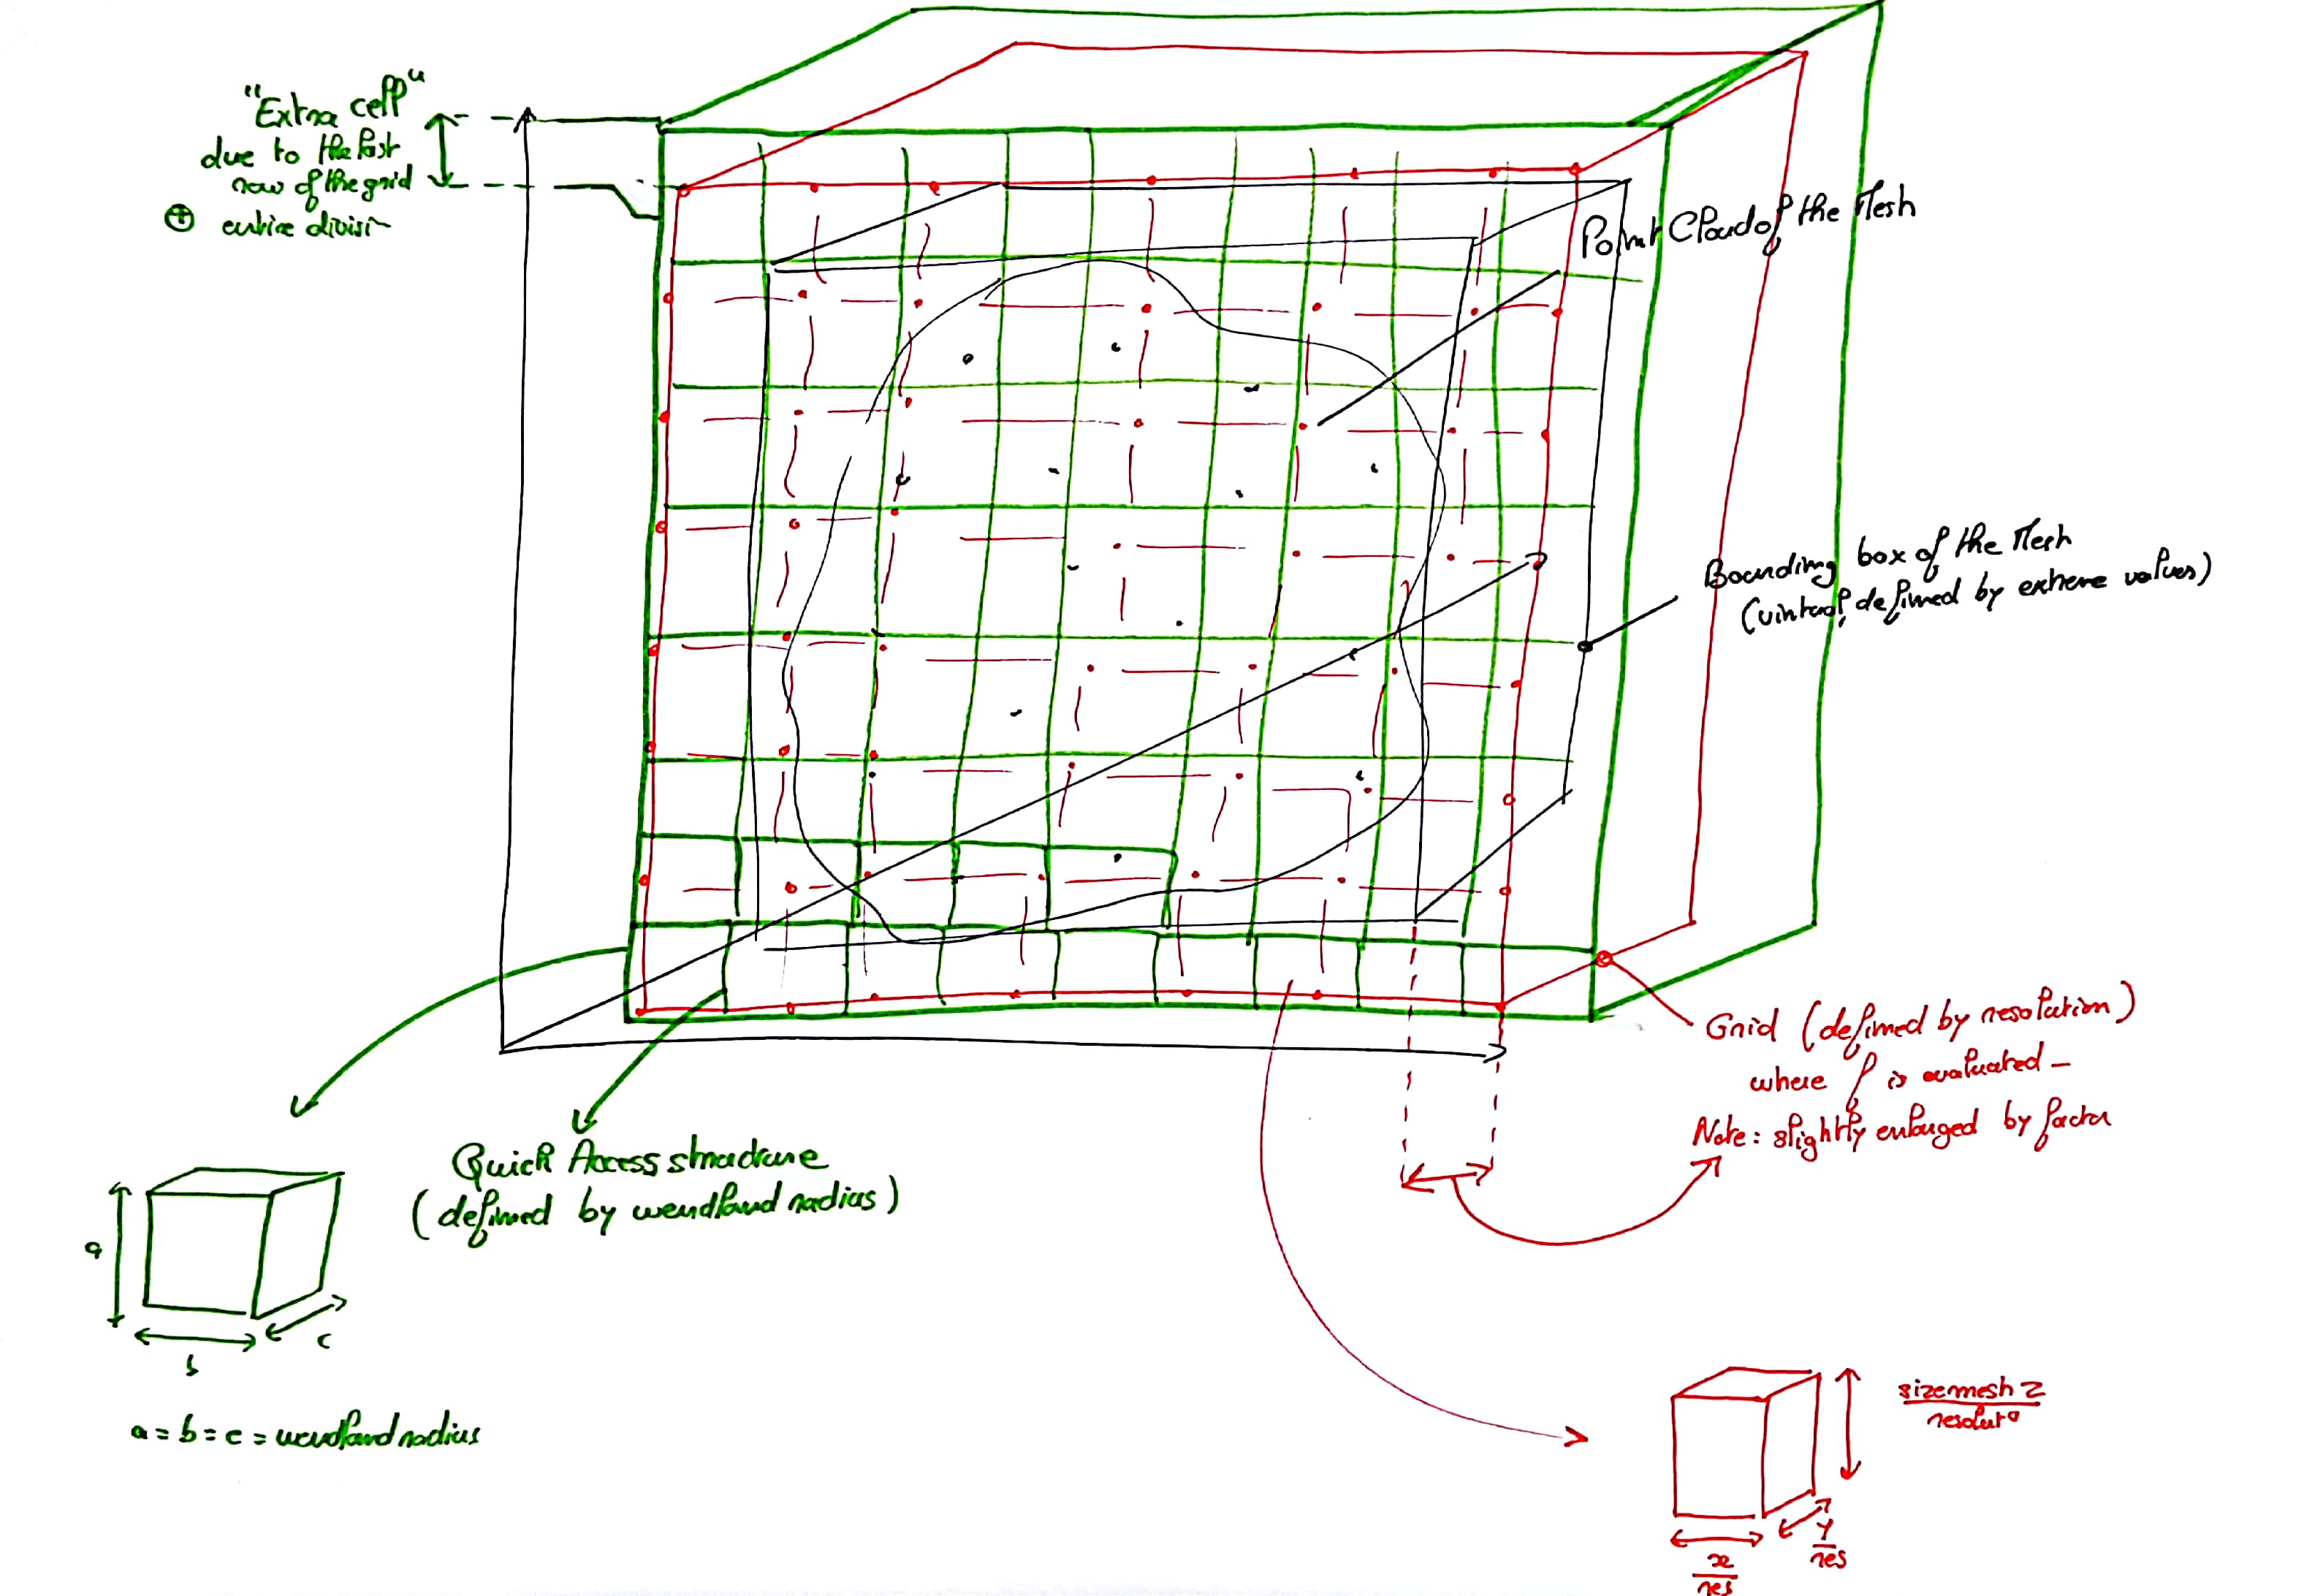 "Extra cell"
due to the last
row of the grid
⊕ entire divisi-
Point Cloud of the Mesh
Bounding box of the Mesh
(virtual, defined by extreme values)
Grid (defined by resolution)
where f is evaluated -
Note: slightly enlarged by factor
Quick Access structure
(defined by wendland radius)
a
b
c
a = b = c = wendland radius
sizemesh z
resolut°
x
res
y
res